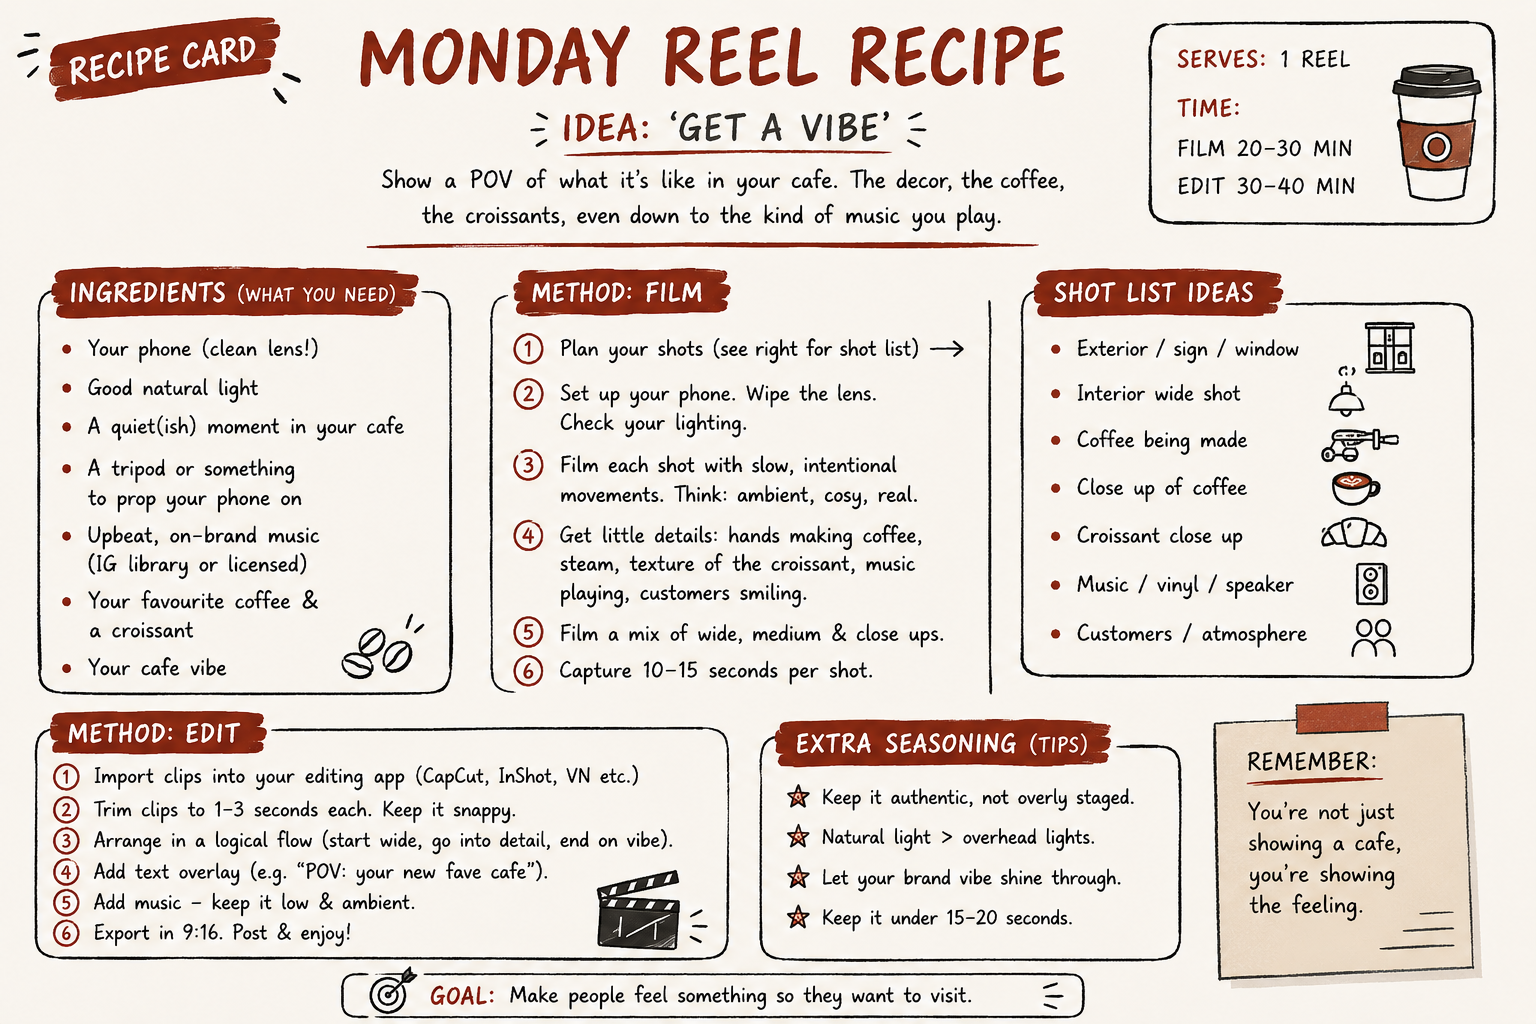 RECIPE CARD
MONDAY REEL RECIPE
IDEA: ‘GET A VIBE’
Show a POV of what it’s like in your cafe. The decor, the coffee,
the croissants, even down to the kind of music you play.
SERVES: 1 REEL
TIME:
FILM 20–30 MIN
EDIT 30–40 MIN
INGREDIENTS (WHAT YOU NEED)
• Your phone (clean lens!)
• Good natural light
• A quiet(ish) moment in your cafe
• A tripod or something
to prop your phone on
• Upbeat, on-brand music
(IG library or licensed)
• Your favourite coffee &
a croissant
• Your cafe vibe
METHOD: FILM
1 Plan your shots (see right for shot list) →
2 Set up your phone. Wipe the lens.
Check your lighting.
3 Film each shot with slow, intentional
movements. Think: ambient, cosy, real.
4 Get little details: hands making coffee,
steam, texture of the croissant, music
playing, customers smiling.
5 Film a mix of wide, medium & close ups.
6 Capture 10–15 seconds per shot.
SHOT LIST IDEAS
• Exterior / sign / window
• Interior wide shot
• Coffee being made
• Close up of coffee
• Croissant close up
• Music / vinyl / speaker
• Customers / atmosphere
METHOD: EDIT
1 Import clips into your editing app (CapCut, InShot, VN etc.)
2 Trim clips to 1–3 seconds each. Keep it snappy.
3 Arrange in a logical flow (start wide, go into detail, end on vibe).
4 Add text overlay (e.g. “POV: your new fave cafe”).
5 Add music – keep it low & ambient.
6 Export in 9:16. Post & enjoy!
EXTRA SEASONING (TIPS)
Keep it authentic, not overly staged.
Natural light > overhead lights.
Let your brand vibe shine through.
Keep it under 15–20 seconds.
REMEMBER:
You’re not just
showing a cafe,
you’re showing
the feeling.
GOAL: Make people feel something so they want to visit.